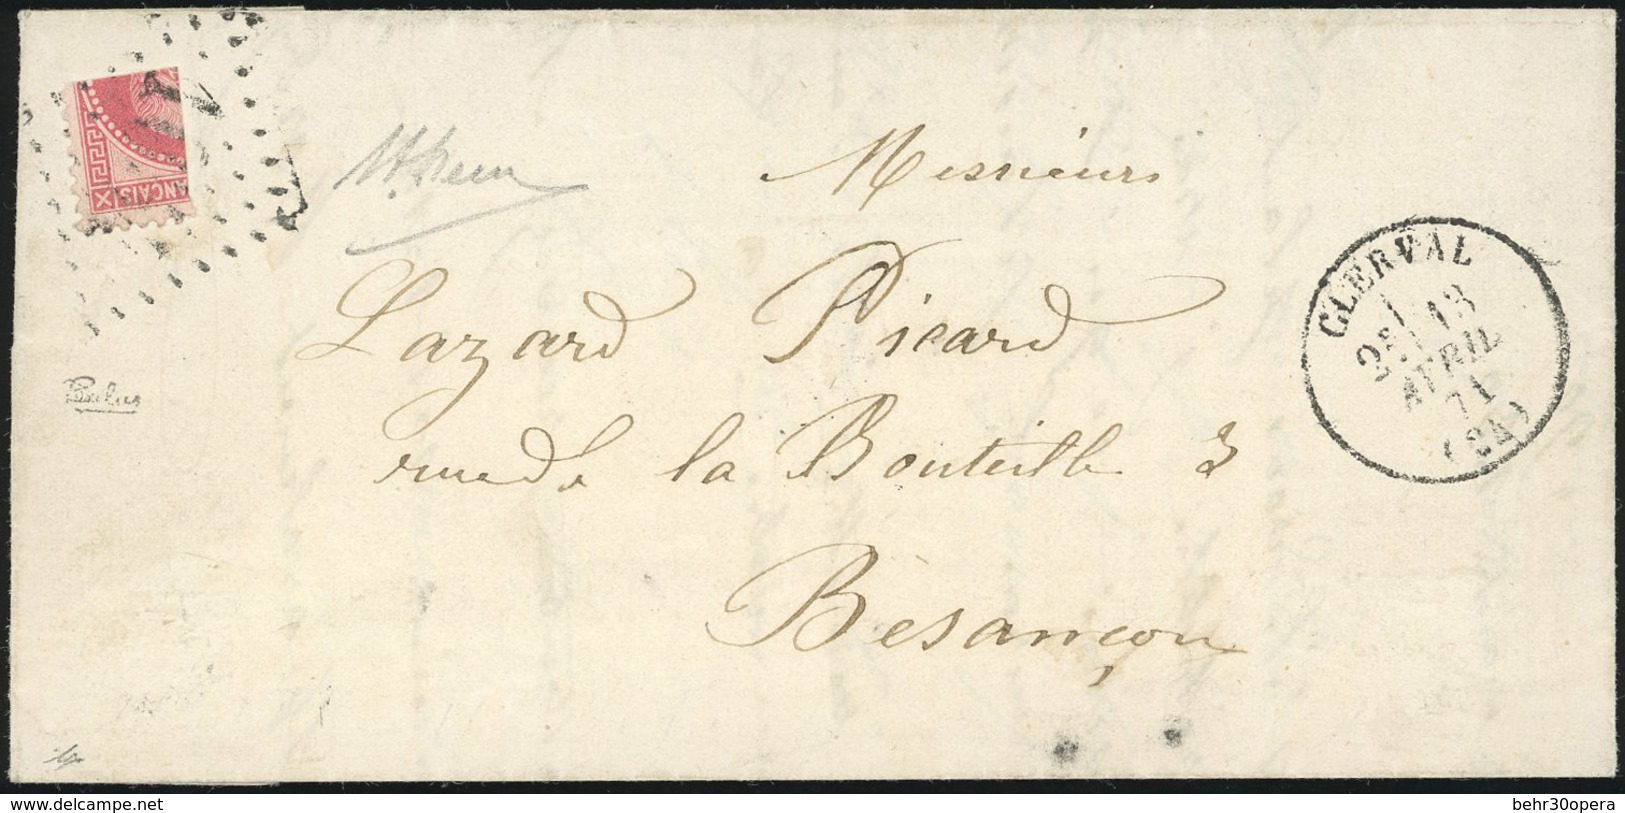 X ANÇAIS
Messieurs
Lazard Picard
rue de la Bouteille 3
Besançon
CLERVAL
2E
13
AVRIL
71
(24)
Calves
www.delcampe.net
behr30opera